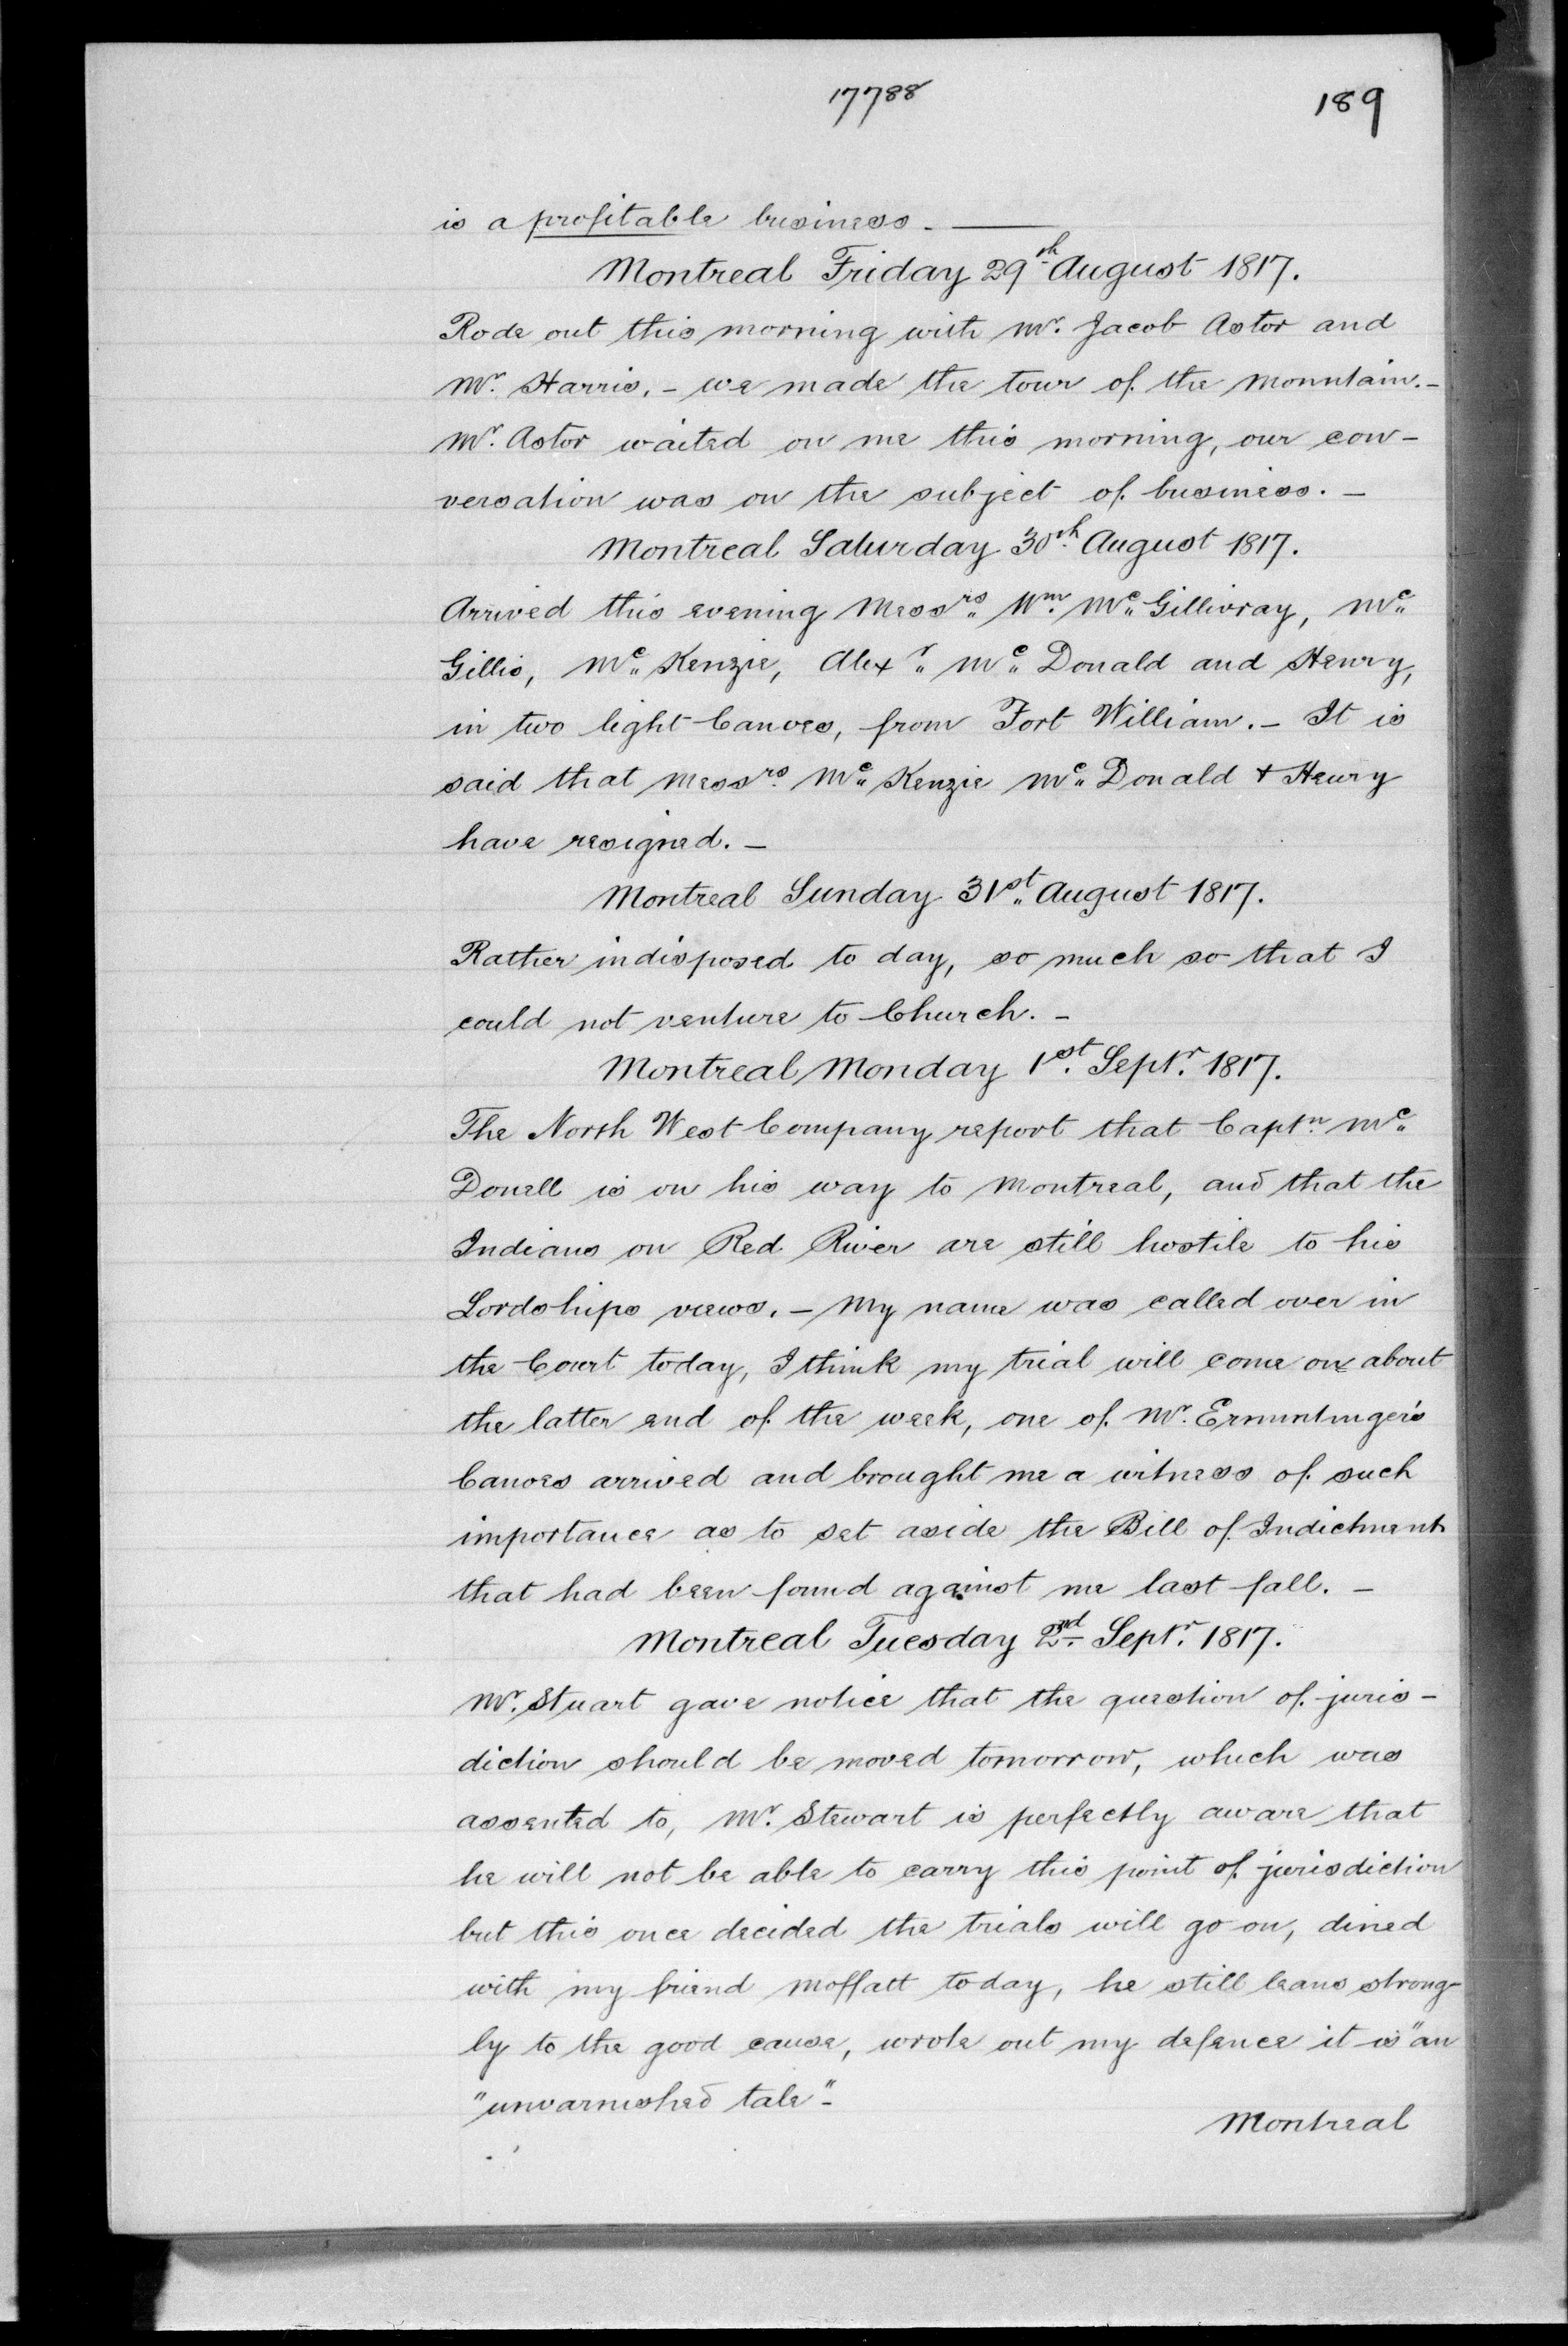 17788
189
is a profitable business. —
Montreal Friday 29th August 1817.
Rode out this morning with Mr. Jacob Astor and
Mr. Harris. - we made the tour of the Mountain. -
Mr. Astor waited on me this morning, our con-
versation was on the subject of business. -
Montreal Saturday 30th August 1817.
Arrived this evening Messrs. Wm. Mc. Gillivray, Mc.
Gillis, Mc. Kenzie, Alexr. Mc. Donald and Henry,
in two light Canoes, from Fort William. - It is
said that Messrs. Mc. Kenzie Mc. Donald + Henry
have resigned. -
Montreal Sunday 31st. August 1817.
Rather indisposed to day, so much so that I
could not venture to Church. -
Montreal Monday 1st. Septr. 1817.
The North West Company report that Captn. Mc.
Donell is on his way to Montreal, and that the
Indians on Red River are still hostile to his
Lordships views. - My name was called over in
the Court today, I think my trial will come on about
the latter end of the week, one of Mr. Ermintinger's
Canoes arrived and brought me a witness of such
importance as to set aside the Bill of Indictment
that had been found against me last fall. -
Montreal Tuesday 2nd. Septr. 1817.
Mr. Stuart gave notice that the question of juris-
diction should be moved tomorrow, which was
assented to, Mr. Stewart is perfectly aware that
he will not be able to carry this point of jurisdiction
but this once decided the trials will go on, dined
with my friend Moffatt today, he still leans strong-
ly to the good cause, wrote out my defence it is "an
"unvarnished tale" -
Montreal